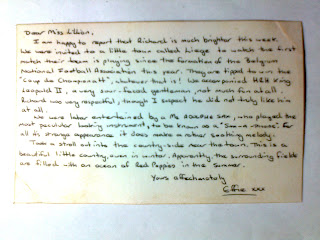 Dear Miss Lillian,
I am happy to report that Richard is much brighter this week.
We were invited to a little town called Liege to watch the first
match their team is playing since the formation of the Belgium
National Football Association this year. They are tipped to win the
"Coup de Championatt", whatever that is! We accompanied HRH King
Leopold II, a very sour-faced gentleman, not much fun at all.
Richard was very respectful, though I suspect he did not truly like him
at all.
We were later entertained by a Mr Adolphe Sax, who played the
most peculiar looking instrument, too known as a "Saxa-phone". For
all its strange appearance it does make a rather soothing melody.
Took a stroll out into the country-side near the town. This is a
beautiful little country, even in winter. Apparently, the surrounding fields
are filled with an ocean of Red Poppies in the summer.
Yours affectionately
Effie xxx